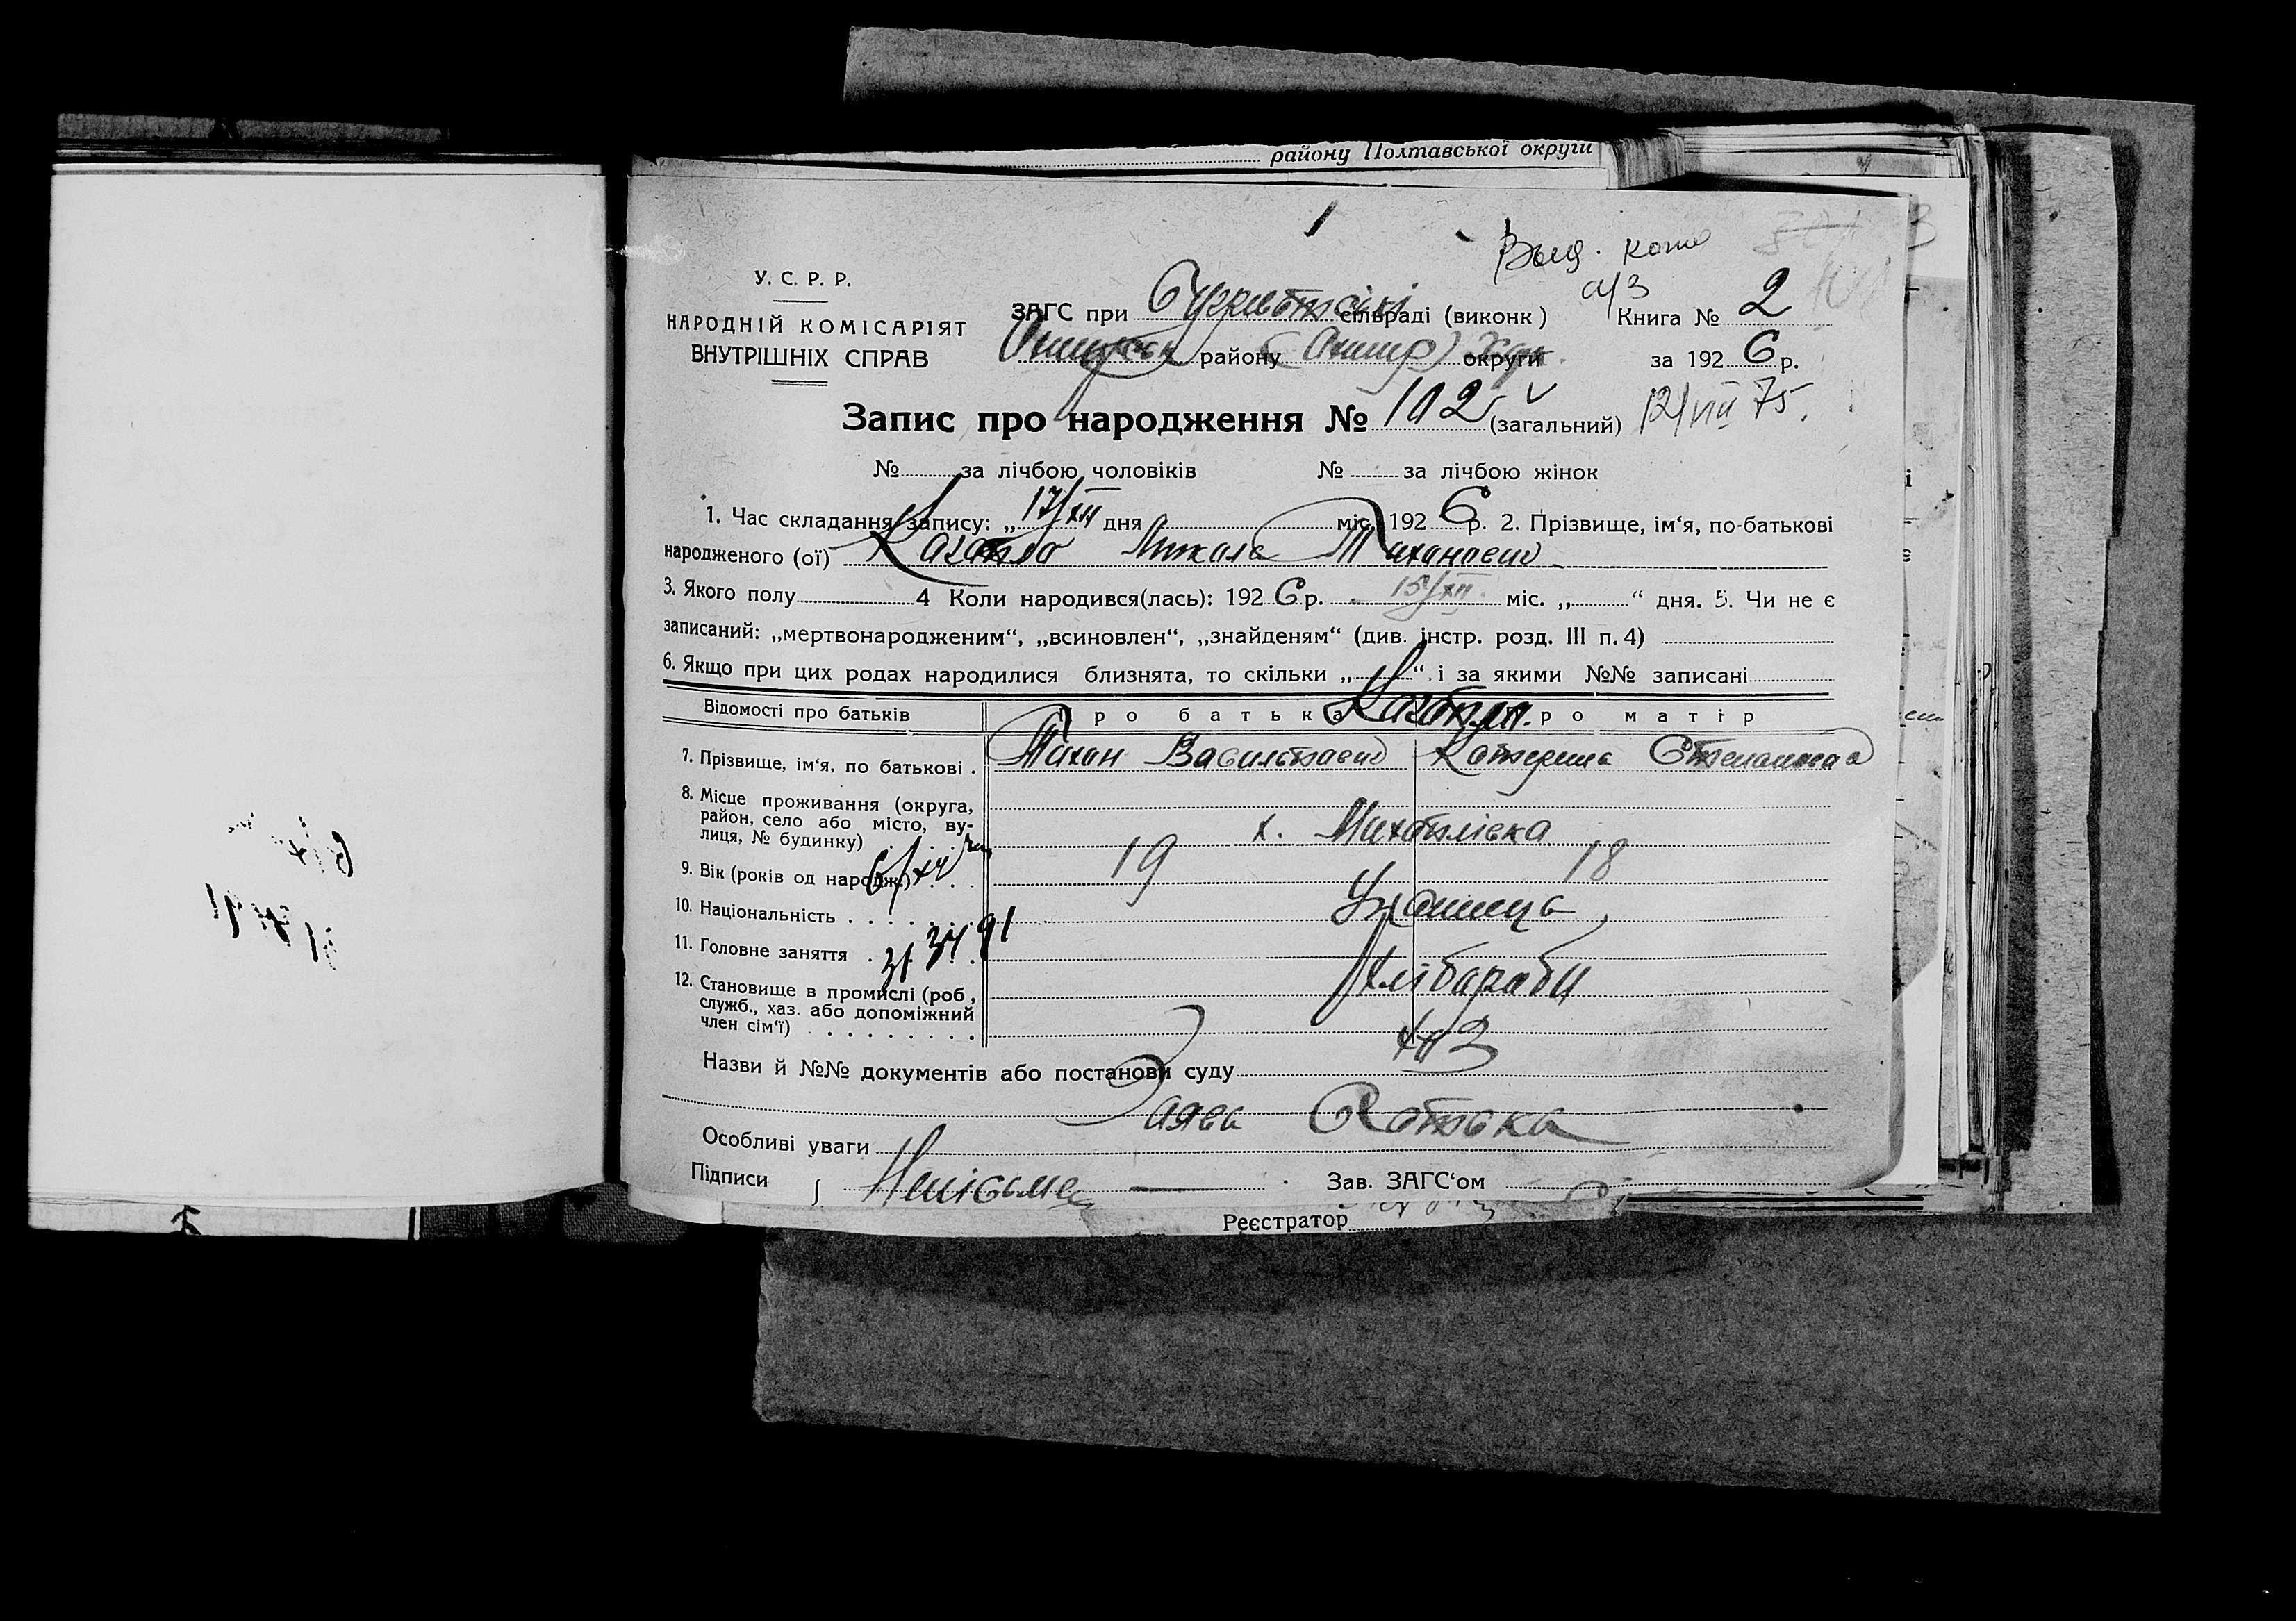 району Полтавської округи
1
Выд. копо
а/з
У. С. Р. Р.
НАРОДНІЙ КОМІСАРІЯТ
ВНУТРІШНІХ СПРАВ
ЗАГС при сільраді (виконк)
району округи
Книга № 2
за 1926 р.
12/VIII 75.
Запис про народження № 102 (загальний)
№ за лічбою чоловіків № за лічбою жінок
1. Час складання запису: „17/XII дня міс. 1926 р. 2. Прізвище, ім‘я, по-батькові
народженого (ої) Микола Тиханович
3. Якого полу 4 Коли народився(лась): 1926 р. 15/XII міс. „ “ дня. 5. Чи не є
записаний: „мертвонародженим“, „всиновлен“, „знайденям“ (див. інстр. розд. III п. 4)
6. Якщо при цих родах народилися близнята, то скільки „ “ і за якими №№ записані
Відомості про батьків Про батька Про матір
7. Прізвище, ім‘я, по батькові . Тихон Васильович Катерина Степановна
8. Місце проживання (округа,
район, село або місто, ву-
лиця, № будинку) х. Михайлівка
9. Вік (років од народж.) 19 18
10. Національність Українці
11. Головне заняття Хлібороби
31 34 91
12. Становище в промислі (роб.,
служб., хаз. або допоміжний
член сім‘ї)
Назви й №№ документів або постанови суду
Заява Батька
Особливі уваги
Підписи Неписьме Зав. ЗАГС‘ом
Реєстратор